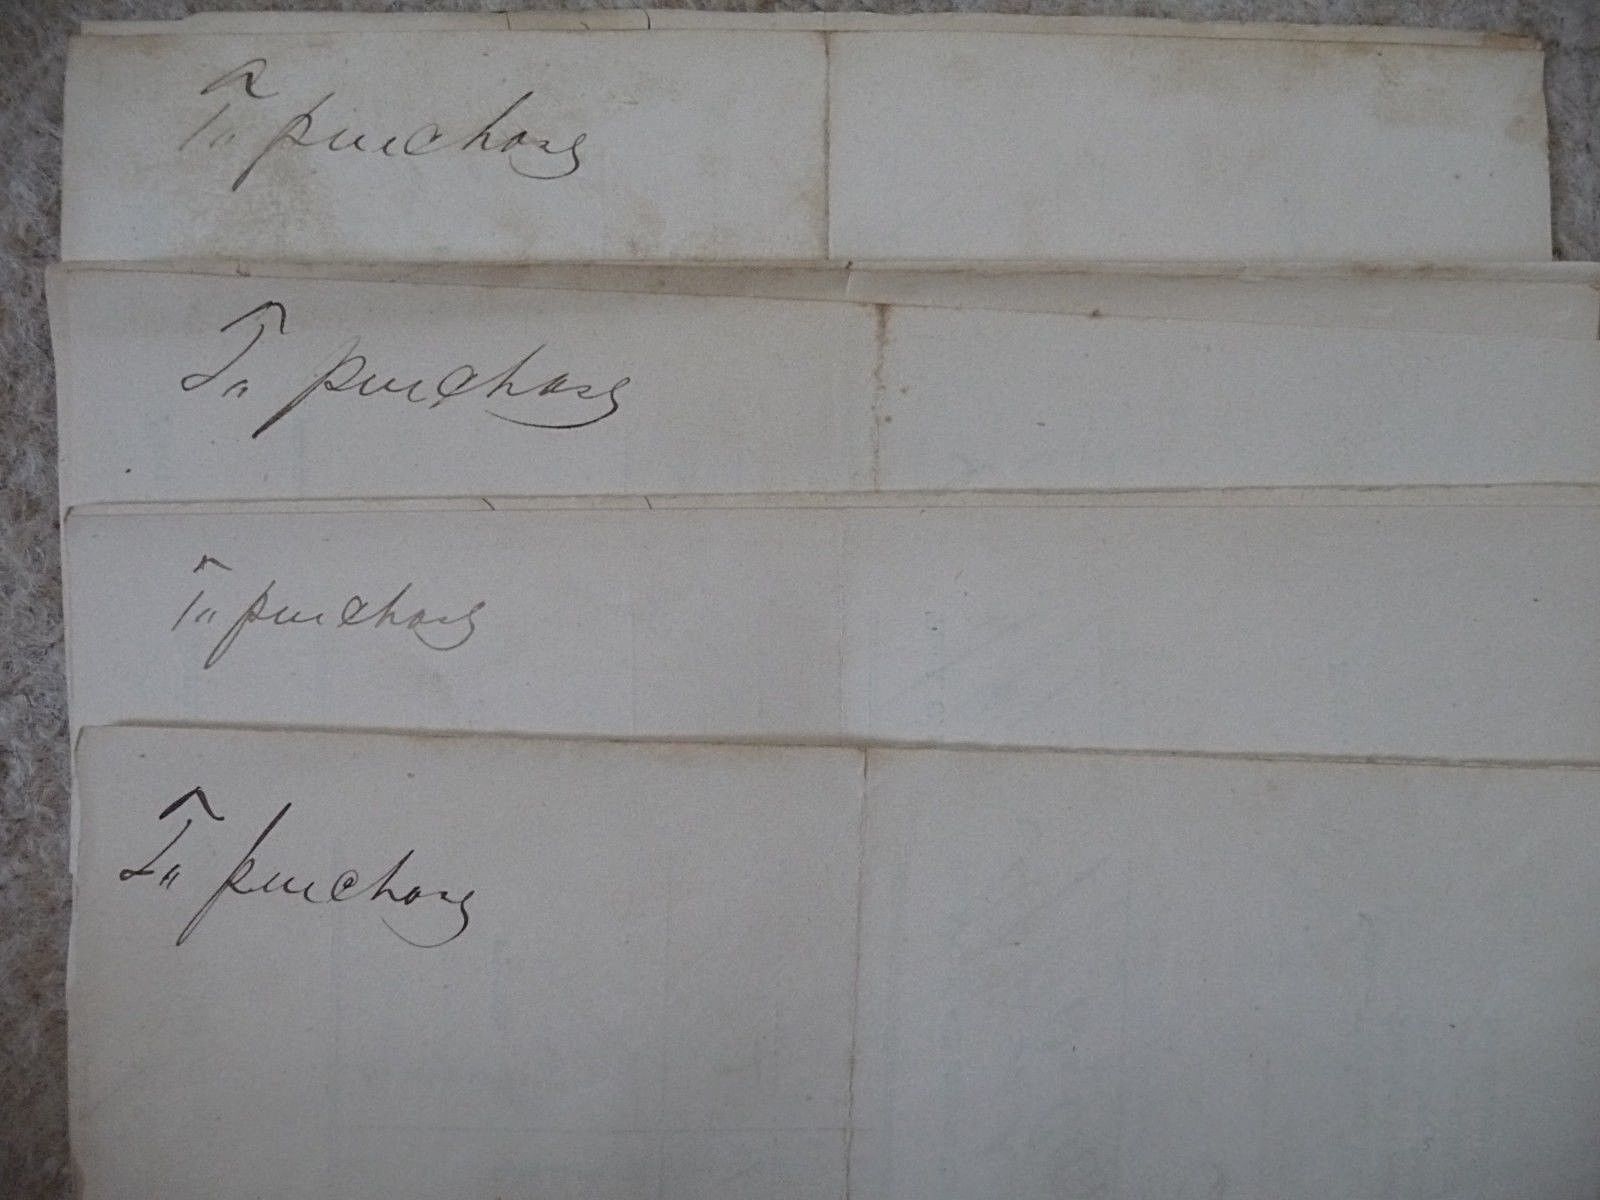 To purchase
To purchase
To purchase
To purchase